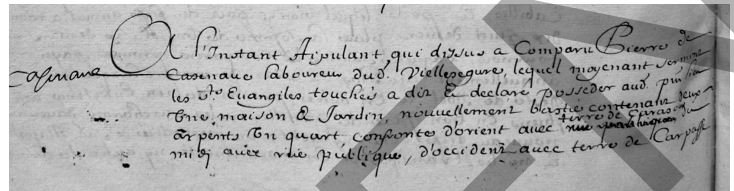 Casenave
A l'Instant stipulant qui dissus a Comparu Pierre de
Casenave laboureur dud. Viellesegure, lequel moyenant serment
les Sts Euangiles touchés a dit & declare posseder aud.
Vne maison & Jardin, nouvellement bastie contenant deux
arpents Vn quart, confronte d'orient avec terre de
midi avec rue publique, d'occident avec terre de